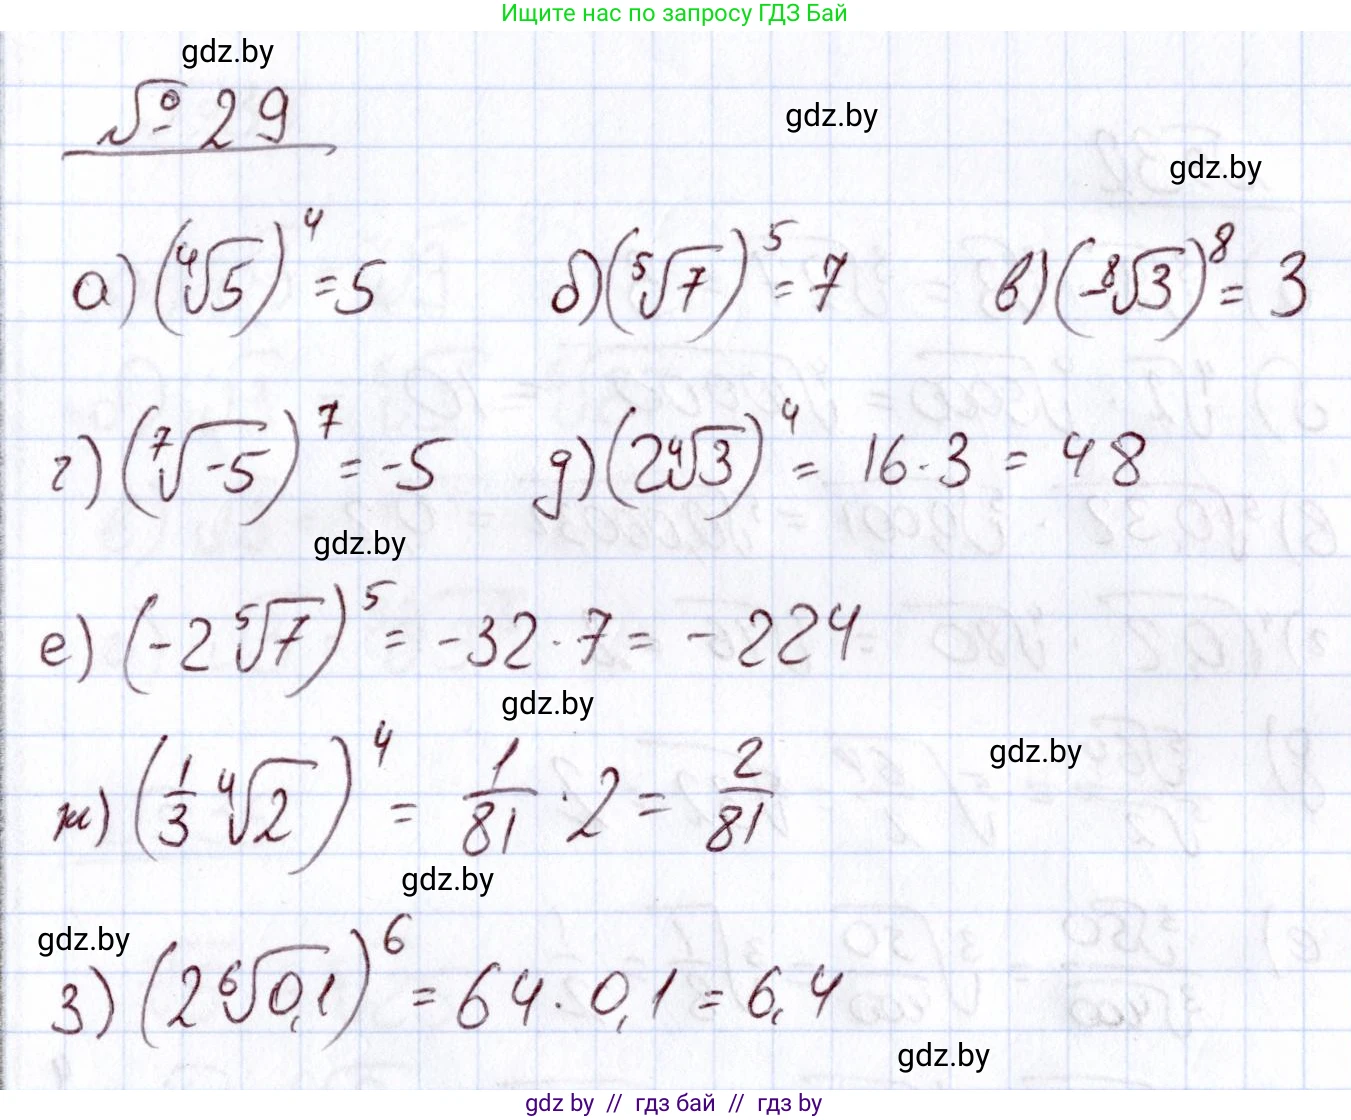 Ищите нас по запросу ГДЗ Бай
gdz.by
№ 29
gdz.by
gdz.by
а) (⁴√5)⁴ = 5 б) (⁵√7)⁵ = 7 в) (-⁸√3)⁸ = 3
г) (⁷√-5)⁷ = -5 д) (2⁴√3)⁴ = 16·3 = 48
gdz.by
е) (-2⁵√7)⁵ = -32·7 = -224
gdz.by
ж) (1/3 ⁴√2)⁴ = 1/81 · 2 = 2/81
gdz.by
gdz.by
gdz.by
з) (2⁶√0,1)⁶ = 64·0,1 = 6,4
gdz.by
gdz by // гдз бай // гдз by